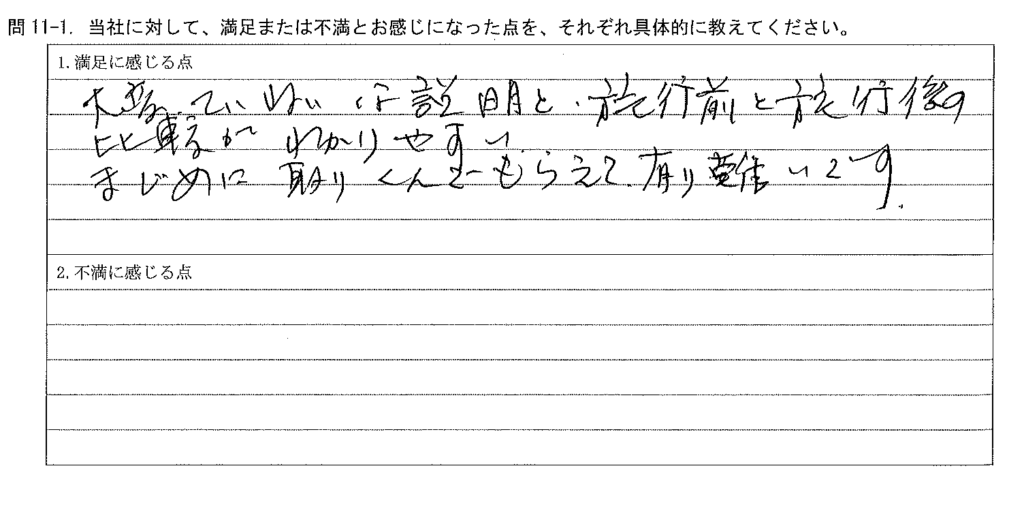 問 11-1. 当社に対して、満足または不満とお感じになった点を、それぞれ具体的に教えてください。
1.満足に感じる点
大変ていねいな説明と、施行前と施行後の
比較がわかりやすい
まじめに取りくんでもらえて、有り難いです。
2.不満に感じる点